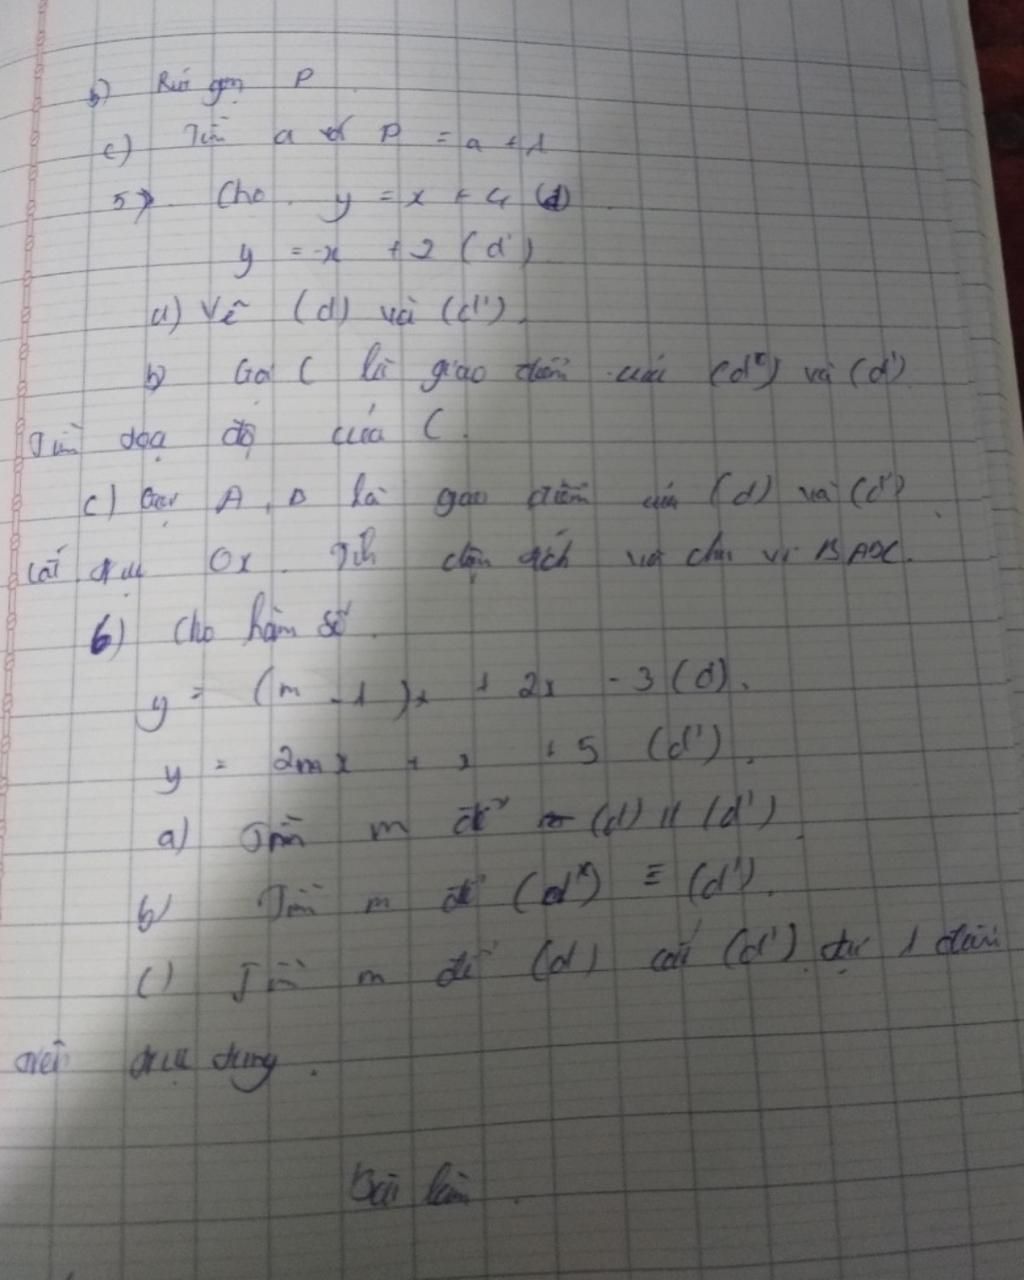 b) Rút gọn P
c) Tìm a để P = a + 1
5) Cho y = x + 4 (d)
y = -x + 2 (d')
a) Vẽ (d) và (d')
b) Gọi C là giao điểm của (d) và (d')
Tìm tọa độ của C.
c) Gọi A, B là giao điểm của (d) và (d')
cắt trục Ox. Tính diện tích và chu vi
6) Cho hàm số
y = (m - 1)x + 2x - 3 (d).
y = 2mx + x + 5 (d').
a) Tìm m để (d) // (d')
b) Tìm m để (d) ≡ (d').
c) Tìm m để (d) cắt (d') tại 1 điểm
trên trục tung.
Bài làm.